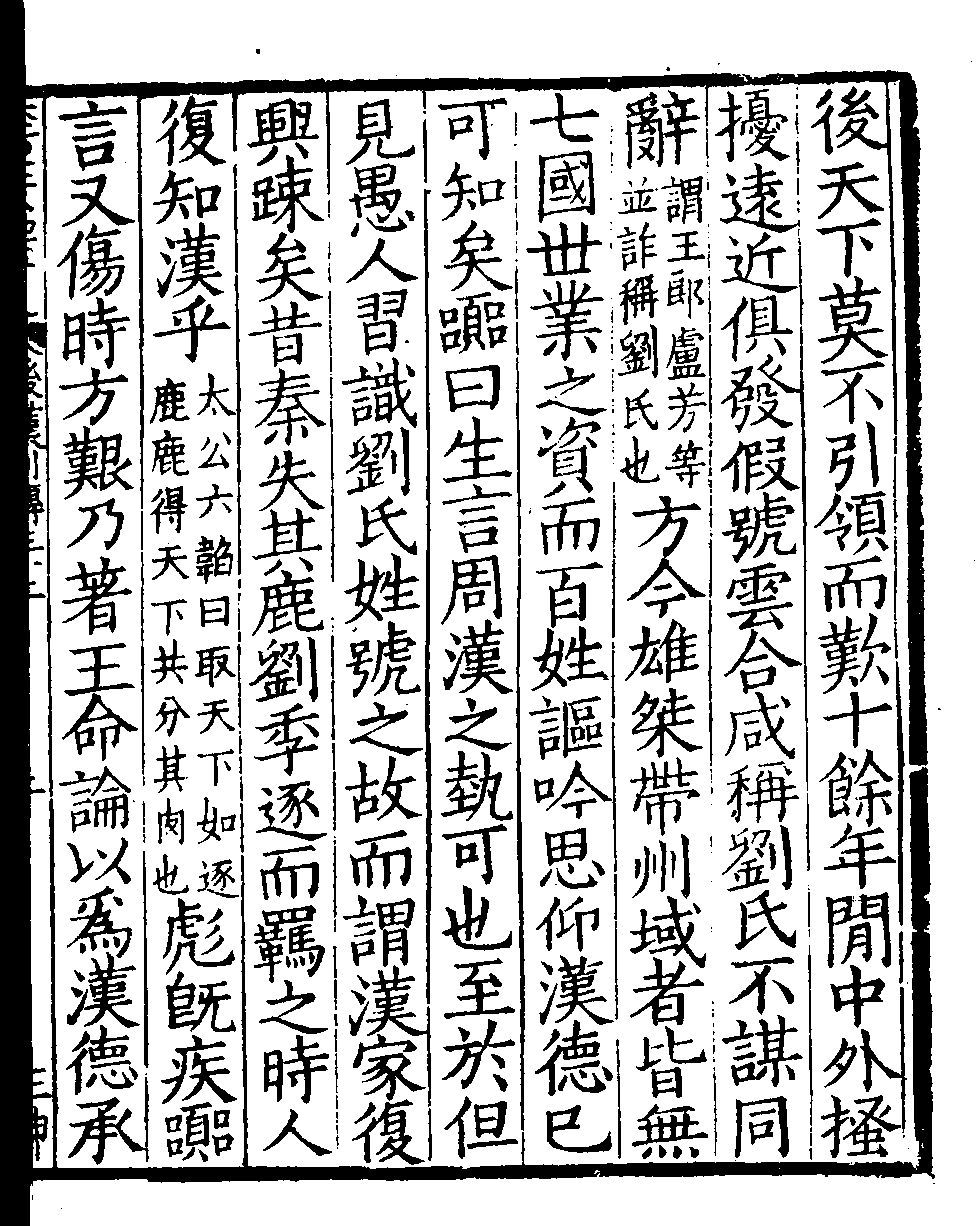 後天下莫不引領而歎十餘年閒中外搔
擾遠近俱發假號雲合咸稱劉氏不謀同
辭謂王郎盧芳等並詐稱劉氏也方今雄桀帶州域者皆無
七國世業之資而百姓謳吟思仰漢德已
可知矣嚻曰生言周漢之埶可也至於但
見愚人習識劉氏姓號之故而謂漢家復
興踈矣昔秦失其鹿劉季逐而羈之時人
復知漢乎太公六韜曰取天下如逐鹿鹿得天下共分其肉也彪旣疾嚻
言又傷時方艱乃著王命論以爲漢德承